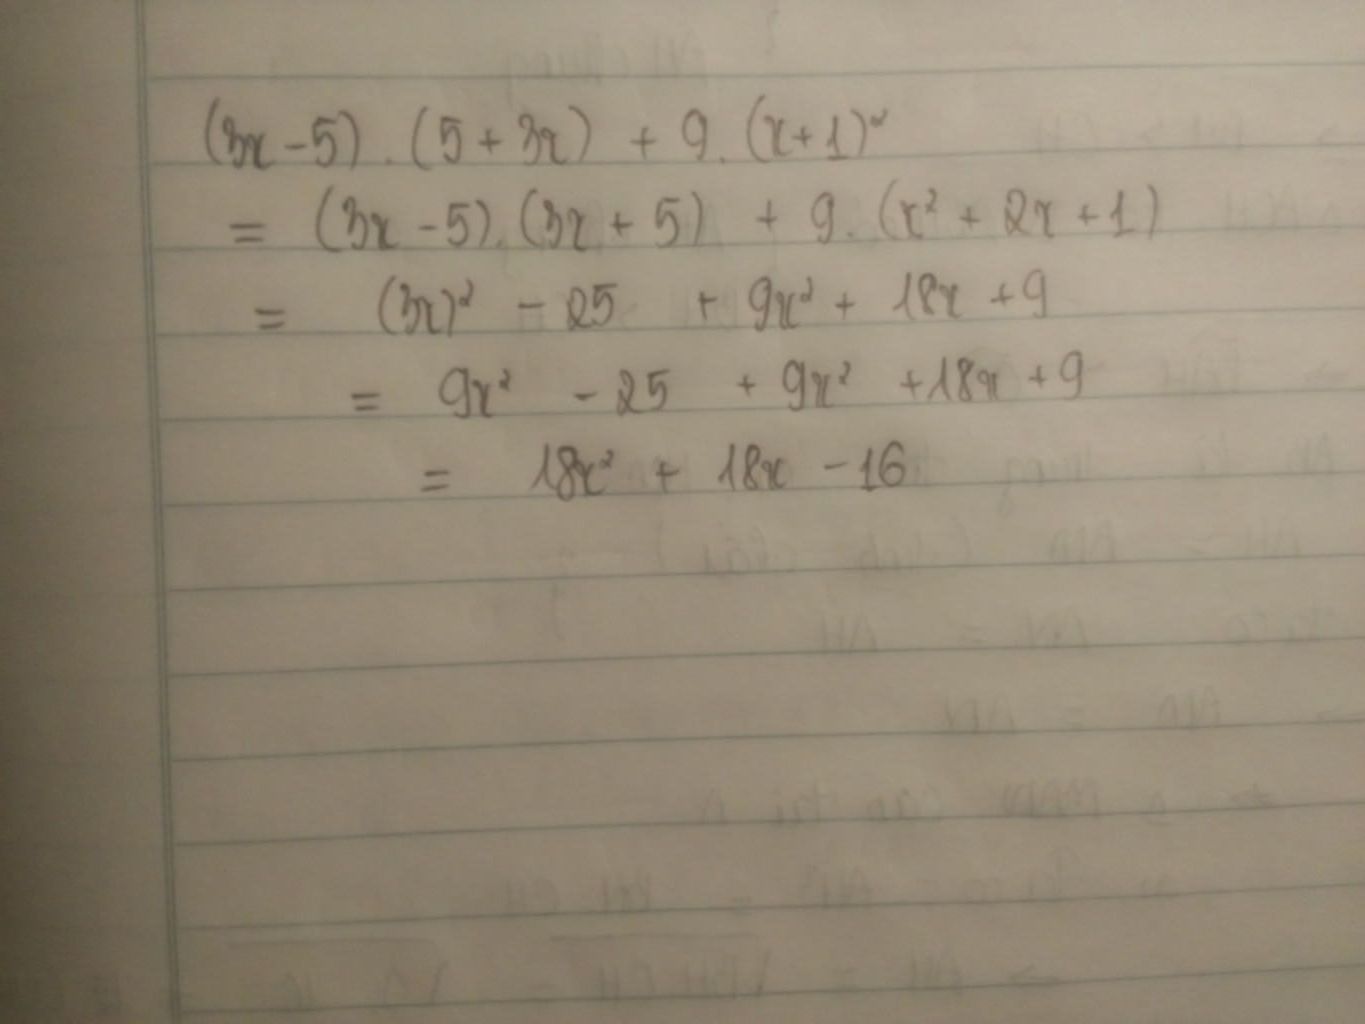 (3x - 5) . (5 + 3x) + 9 . (x + 1)²
= (3x - 5) . (3x + 5) + 9 . (x² + 2x + 1)
= (3x)² - 25 + 9x² + 18x + 9
= 9x² - 25 + 9x² + 18x + 9
= 18x² + 18x - 16